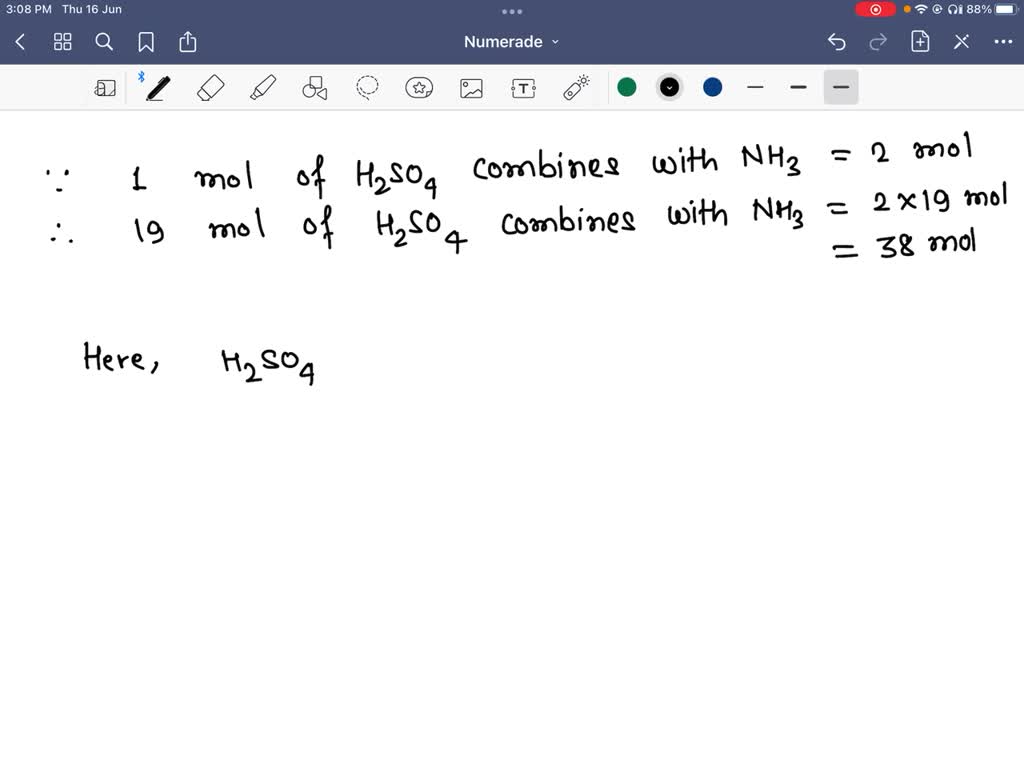 3:08 PM Thu 16 Jun 88%
Numerade
T
∵ 1 mol of H₂SO₄ combines with NH₃ = 2 mol
∴ 19 mol of H₂SO₄ combines with NH₃ = 2×19 mol
= 38 mol
Here, H₂SO₄